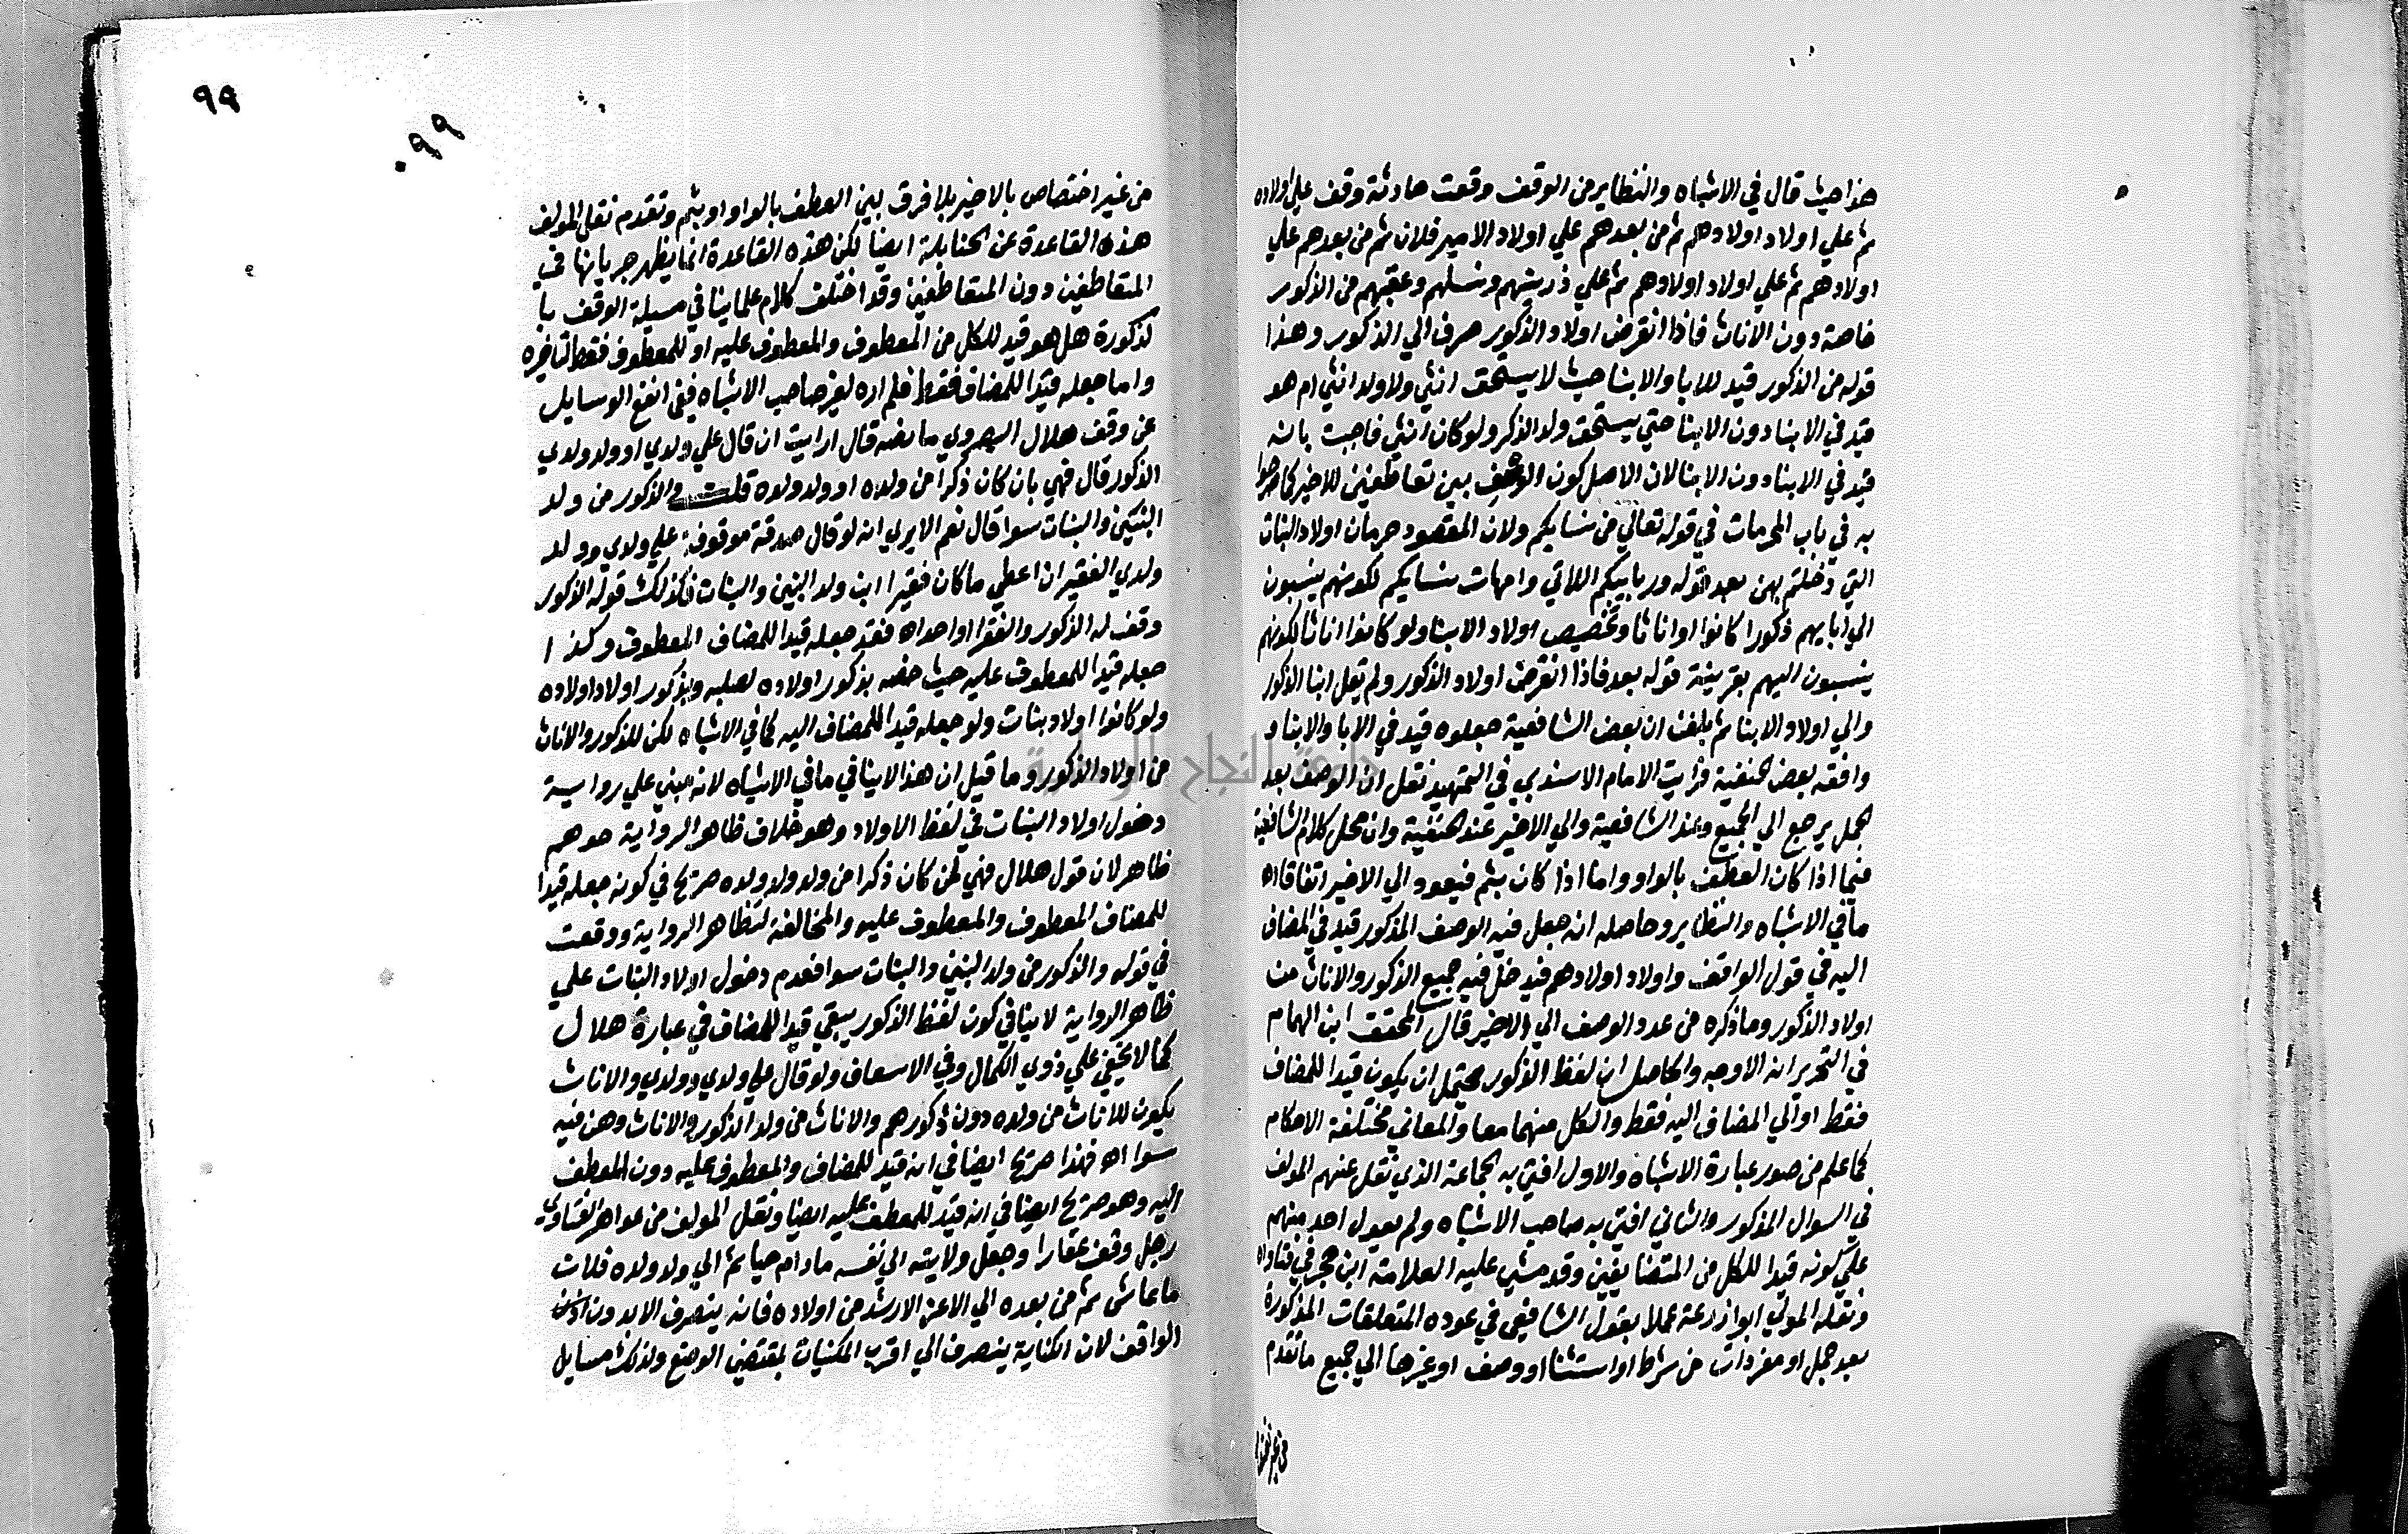 هذا حيث قال في الاشباه والنظاير من الوقف وقعت حادثة وقف علي اولاده
ثم علي اولاد اولادهم ثم من بعدهم علي اولاد الامير فلان ثم من بعدهم علي
اولادهم ثم علي اولاد اولادهم ثم علي ذريتهم ونسلهم وعقبهم من الذكور
خاصة دون الاناث فاذا انقرض اولاد الذكور صرف الي الذكور وهذا
قوله من الذكور قيد للابا والابنا حيث لا يستحق انثي ولا ولد انثي ام هو
قيد في الابنا دون الابنا حتي يستحق ولد الذكر ولو كان انثي فاجبت بانه
قيد في الابنا دون الابنا لان الاصل كون الوصف بين تعاطفين للاخير كما صرحوا
به في باب المحرمات في قوله تعالي من نسايكم ولان المقصود حرمان اولاد البنات
التي دخلتم بهن بعد قوله ورباييكم اللاتي وامهات نسايكم لكونهم ينسبون
الي ابايهم ذكورا كانوا اواناثا وتخصيص اولاد الابنا ولو كانوا اناثا لكونهم
ينسبون اليهم بقرينة قوله بعد فاذا انقرض اولاد الذكور ولم يقل ابنا الذكور
والي اولاد الابنا ثم بلغني ان بعض الشافعية جعلوه قيد في الابا والابنا و
وافقه بعض الحنفية فرايت الامام الاسندي في التمهيد نقل ان الوصف بعد
الجمل يرجع الي الجميع وعند الشافعية والي الاخير عند الحنفية وان محل كلام الشافعية
فيما اذا كان العطف بالواو واما اذا كان بثم فيعود الي الاخير اتفاقا اه
ما في الاشباه والنظاير وحاصله انه جعل فيه الوصف المذكور قيد في المضاف
اليه في قول الواقف واولاد اولادهم فيدخل فيه جميع الذكور والاناث من
اولاد الذكور وما ذكره من عدد الوصف الي الاخير قال المحقق ابن الهمام
في التحرير انه الاوجه والحاصل ان لفظ الذكور محتمل ان يكون قيدا للمضاف
فقط او الي المضاف اليه فقط والكل منهما معا والمعاني مختلفة الاحكام
كما علم من صور عبارة الاشباه والاول افتي به الجماعة الذي نقل عنهم المولف
في السوال المذكور والثاني افتي به صاحب الاشباه ولم يعول احد منهم
علي كونه قيدا للكل من المتضايفين وقد مشي عليه العلامة ابن حجر في فتاواه
ونقله المولي ابو ازرعة عملا بقول الشافعي في عوده المتعلقات المذكورة
بعد جمل او مفردات من شرط او استثنا او وصف او غيرها الي جميع ما تقدم
من غير اختصاص بالاخير بلا فرق بين العطف بالواو او بثم وتقدم نقل المولف
هذه القاعدة عن الحنابلة ايضا لكن هذه القاعدة انما يظهر جريانها في
المتعاطفين دون المتعاطفين وقد اختلف كلام علماينا في مسيلة الوقف با
لذكورة هل هو قيد للكل من المعطوف والمعطوف عليه او للمعطوف فقط لتاخره
واما جعله قيدا للمضاف فقط فلم اره لغير صاحب الاشباه ففي انفع الوسايل
عن وقف هلال البصروي ما نصه قال ارايت ان قال علي ولدي او ولد ولدي
الذكور قال فهي بان كان ذكرا من ولده او ولد ولده قلت والذكور من ولد
البنين والبنات سوا قال نعم الا يري انه لو قال صدقة موقوفة علي ولدي وولد
ولدي الفقير ان اعطي ما كان فقيرا ابن ولد البنين والبنات فكذلك قوله الذكور
وقف له الذكور والفقرا اواحداه فقد جعله قيدا للمضاف المعطوف وكذا
جعله قيدا للمعطوف عليه حيث خصه بذكور اولاده لصلبه وبذكور اولاد اولاده
ولو كانوا اولاد بنات ولو جعله قيدا للمضاف اليه كما في الاشباه لكن للذكور والاناث
من اولاد الذكور وما قيل ان هذا لا ينافي ما في الاشباه لانه مبني علي رواية
دخول اولاد البنات في لفظ الاولاد وهو خلاف ظاهر الرواية هو وهم
ظاهر لان قول هلال فهي لمن كان ذكرا من ولد وولد ولده صريح في كونه جعله قيدا
للمضاف المعطوف والمعطوف عليه والمخالفة لظاهر الرواية ووقعت
في قوله والذكور من ولد البنين والبنات سوا فعدم دخول اولاد البنات علي
ظاهر الرواية لا ينافي كون لفظ الذكور يبقي قيدا للمضاف في عبارة هلال
كما لا يخفي علي ذوي الكمال وفي الاسعاف ولو قال علي ولدي وولدي والاناث
يكون للاناث من ولده دون ذكورهم والاناث من ولد الذكور والاناث وهن فيه
سوا اه فهذا صريح ايضا في انه قيد للمضاف والمعطوف عليه دون المعطف
اليه وهو صريح ايضا في انه قيد للمعطف عليه ايضا ونقل المولف من جواهر الفتاوي
رجل وقف عقارا وجعل ولايته الي نفسه مادام حيا ثم الي ولد ولده فلان
ما عاش ثم من بعده الي الاعز الارشد من اولاده فانه ينصرف الابدون اذن
الواقف لان الكناية ينصرف الي اقرب المكنيات بمقتضي الوضع ولذلك مسايل